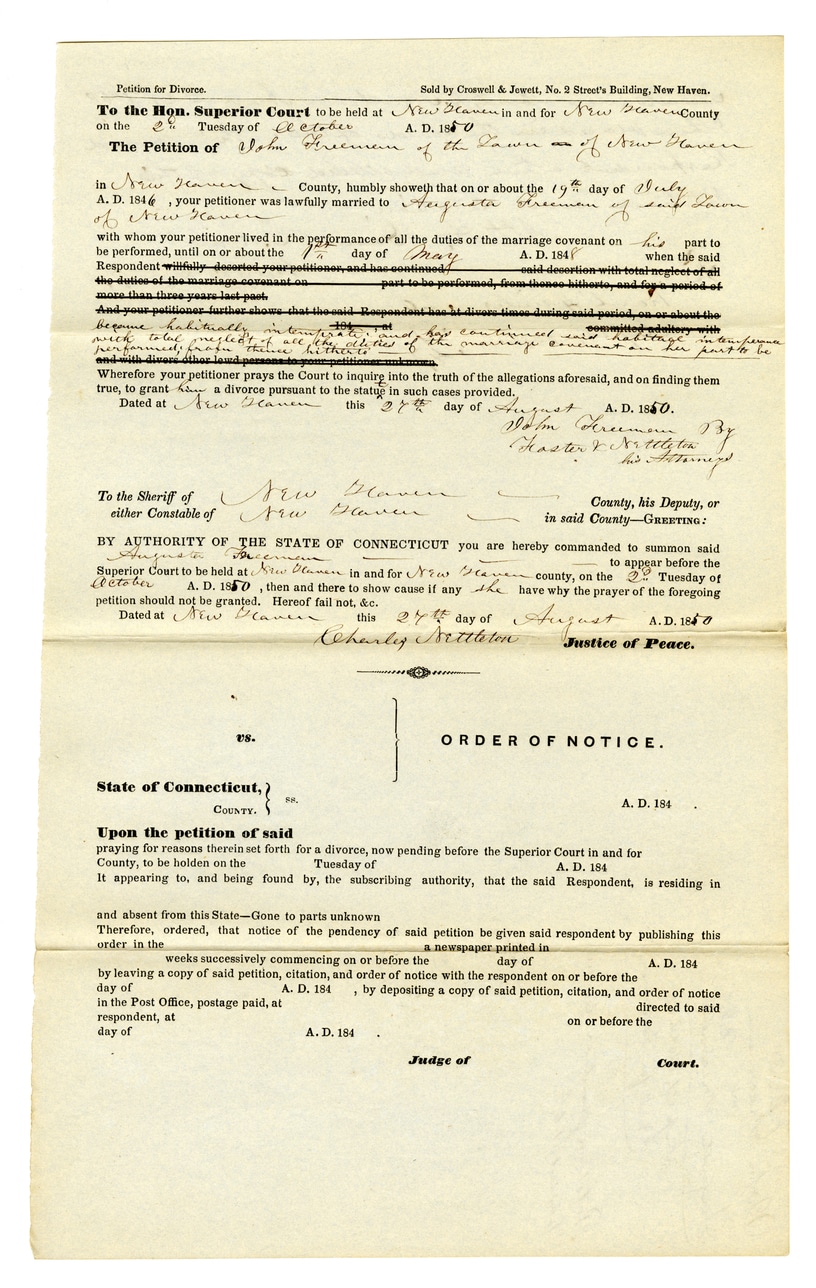 Petition for Divorce. Sold by Croswell & Jewett, No. 2 Street's Building, New Haven.
To the Hon. Superior Court to be held at New Haven in and for New Haven County
on the 2d Tuesday of October A. D. 1850
The Petition of John Freeman of the Town of New Haven
in New Haven County, humbly showeth that on or about the 19th day of July
A. D. 1846 , your petitioner was lawfully married to Augusta Freeman of said Town
of New Haven
with whom your petitioner lived in the performance of all the duties of the marriage covenant on his part to
be performed, until on or about the 1st day of May A. D. 1848 when the said
Respondent willfully deserted your petitioner, and has continued said desertion with total neglect of all
the duties of the marriage covenant on part to be performed, from thence hitherto, and for a period of
more than three years last past.
And your petitioner further shows that the said Respondent has at divers times during said period, on or about the
184 , at committed adultery with
became habitually intemperate; and has continued said habitual intemperance
with total neglect of all the duties of the marriage covenant on her part to be
performed, from thence hitherto
and with divers other lewd persons to your petitioner unknown.
Wherefore your petitioner prays the Court to inquire into the truth of the allegations aforesaid, and on finding them
true, to grant him a divorce pursuant to the statute in such cases provided.
Dated at New Haven this 27th day of August A. D. 1850.
John Freeman By
Foster & Nettleton
his Attorneys
To the Sheriff of New Haven County, his Deputy, or
either Constable of New Haven in said County—GREETING:
BY AUTHORITY OF THE STATE OF CONNECTICUT you are hereby commanded to summon said
Augusta Freeman to appear before the
Superior Court to be held at New Haven in and for New Haven county, on the 2d Tuesday of
October A. D. 1850 , then and there to show cause if any she have why the prayer of the foregoing
petition should not be granted. Hereof fail not, &c.
Dated at New Haven this 27th day of August A. D. 1850
Charles Nettleton Justice of Peace.
vs. ORDER OF NOTICE.
State of Connecticut,
COUNTY. ss. A. D. 184 .
Upon the petition of said
praying for reasons therein set forth for a divorce, now pending before the Superior Court in and for
County, to be holden on the Tuesday of A. D. 184
It appearing to, and being found by, the subscribing authority, that the said Respondent, is residing in
and absent from this State—Gone to parts unknown
Therefore, ordered, that notice of the pendency of said petition be given said respondent by publishing this
order in the a newspaper printed in
weeks successively commencing on or before the day of A. D. 184
by leaving a copy of said petition, citation, and order of notice with the respondent on or before the
day of A. D. 184 , by depositing a copy of said petition, citation, and order of notice
in the Post Office, postage paid, at directed to said
respondent, at on or before the
day of A. D. 184 .
Judge of Court.